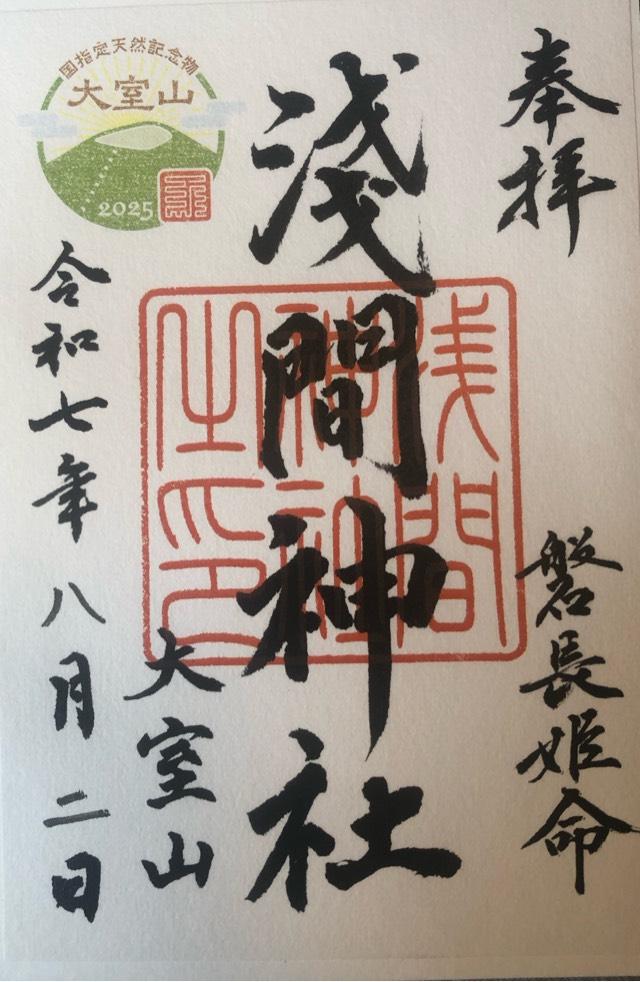 奉拝
磐長姫命
淺間神社
浅間
神社
之印
大室山
令和七年八月二日
国指定天然記念物
大室山
2025